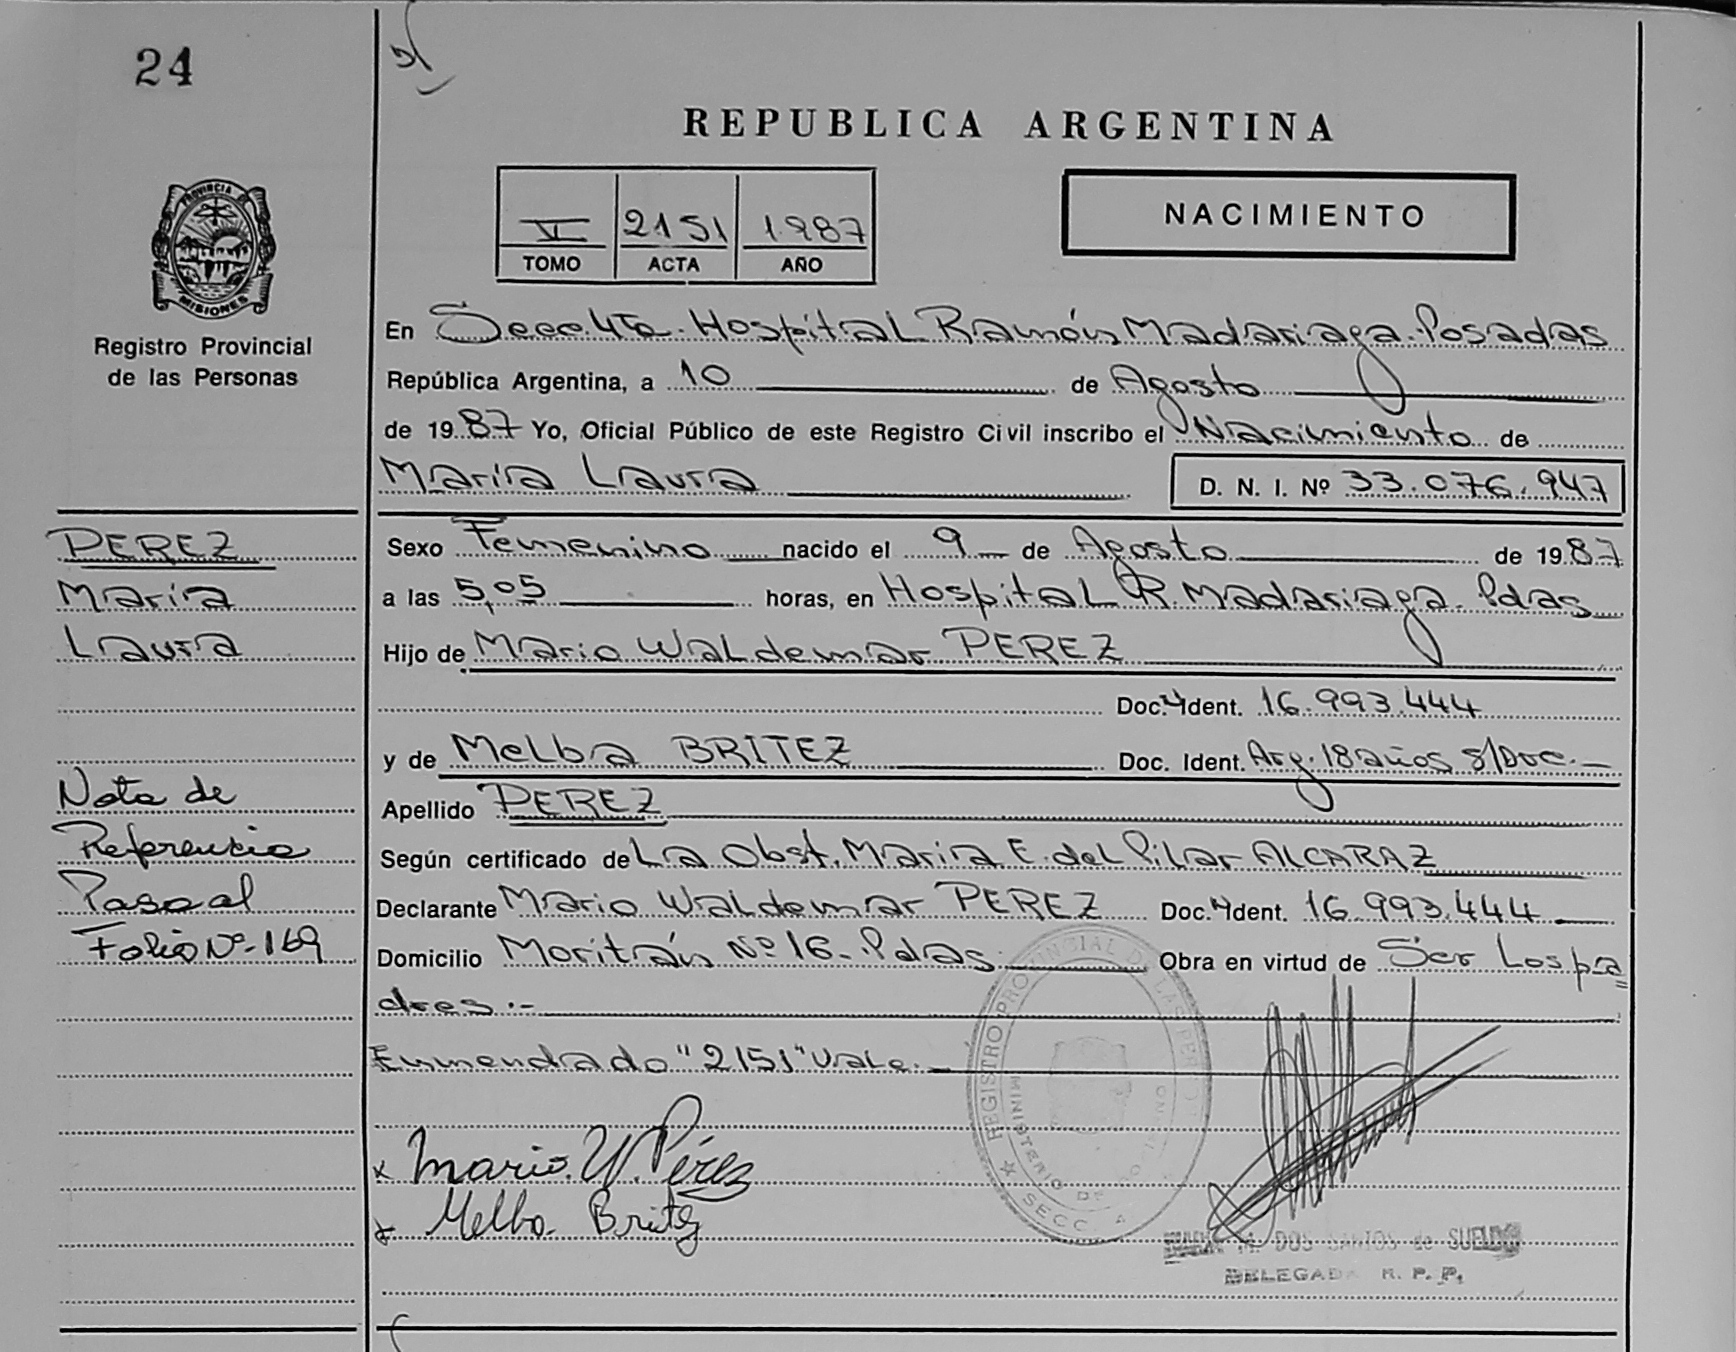 24
REPUBLICA ARGENTINA
VI 2151 1987
TOMO ACTA AÑO
NACIMIENTO
PROVINCIA DE
MISIONES
Registro Provincial
de las Personas
En Secc. 4ta. Hospital Ramón Madariaga. Posadas
República Argentina, a 10 de Agosto
de 1987 Yo, Oficial Público de este Registro Civil inscribo el Nacimiento de
María Laura D. N. I. Nº 33.076.947
PEREZ
María
Laura
Sexo Femenino nacido el 9 de Agosto de 1987
a las 5,05 horas, en Hospital R. Madariaga. Pdas
Hijo de Mario Waldemar PEREZ
Doc. Ident. 16.993.444
y de Melba BRITEZ Doc. Ident. Arg. 18 años s/Doc.-
Apellido PEREZ
Según certificado de La Obst. Maria E. del Pilar ALCARAZ
Declarante Mario Waldemar PEREZ Doc. Ident. 16.993.444
Domicilio Moritán Nº 16- Pdas Obra en virtud de Ser Los pa
dres.-
Nota de
Referencia
Pasa al
Folio Nº-169
Enmendado "2151" Vale.
x Mario. W. Pérez
x Melba. Britez
REGISTRO PROVINCIAL DE LAS PERSONAS
MINISTERIO DE GOBIERNO
SECC. 4
M. DOS SANTOS de SUELDO
DELEGADA R. P. P.